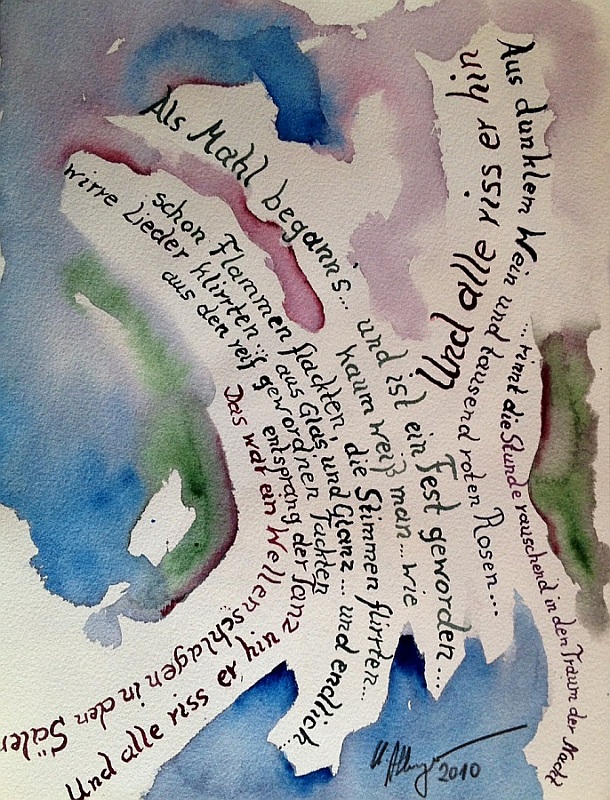 Als Mahl begann's... und ist ein Fest geworden...
kaum weiß man... wie
schon Flammen flackten, die Stimmen flirrten...
wirre Lieder klirrten aus Glas und Glanz... und endlich...
aus den reif gewordnen Tackten
entsprang der Tanz
Und alle riss er hin
Das war ein Wellenschlagen in den Sälen
Und alle riss er hin
Aus dunklem Wein und tausend roten Rosen...
...rinnt die Stunde rauschend in den Traum der Nacht
2010